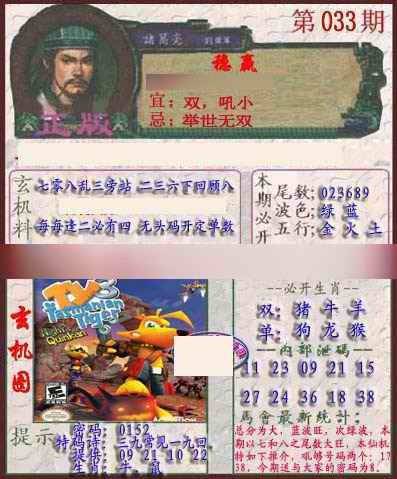 第033期
諸葛亮
稳赢
宜：双，吼小
忌：举世无双
正版
玄机料
七零八乱三旁站 二三六下回顾八
每每逢二必有四 无头码开定单数
本期必开
尾数:023689
波色:绿 蓝
五行:金 火 土
玄机图
TY3
the Tasmanian Tiger
Night of the Quinkan
--必开生肖--
双: 猪 牛 羊
单: 狗 龙 猴
内部泄码
11 23 09 21 18 15
27 24 36 18 38
馬會最新统计:
总分为大，蓝波旺，次绿波，本期以七和八之尾数大旺，本仙机特如下推介，吼够号码两个：17 38，今期送与大家的密码为8.
提示
密码: 0152
特码诗: 三九常见一九回
提供: 09 21 10 22
生肖: 牛，鼠